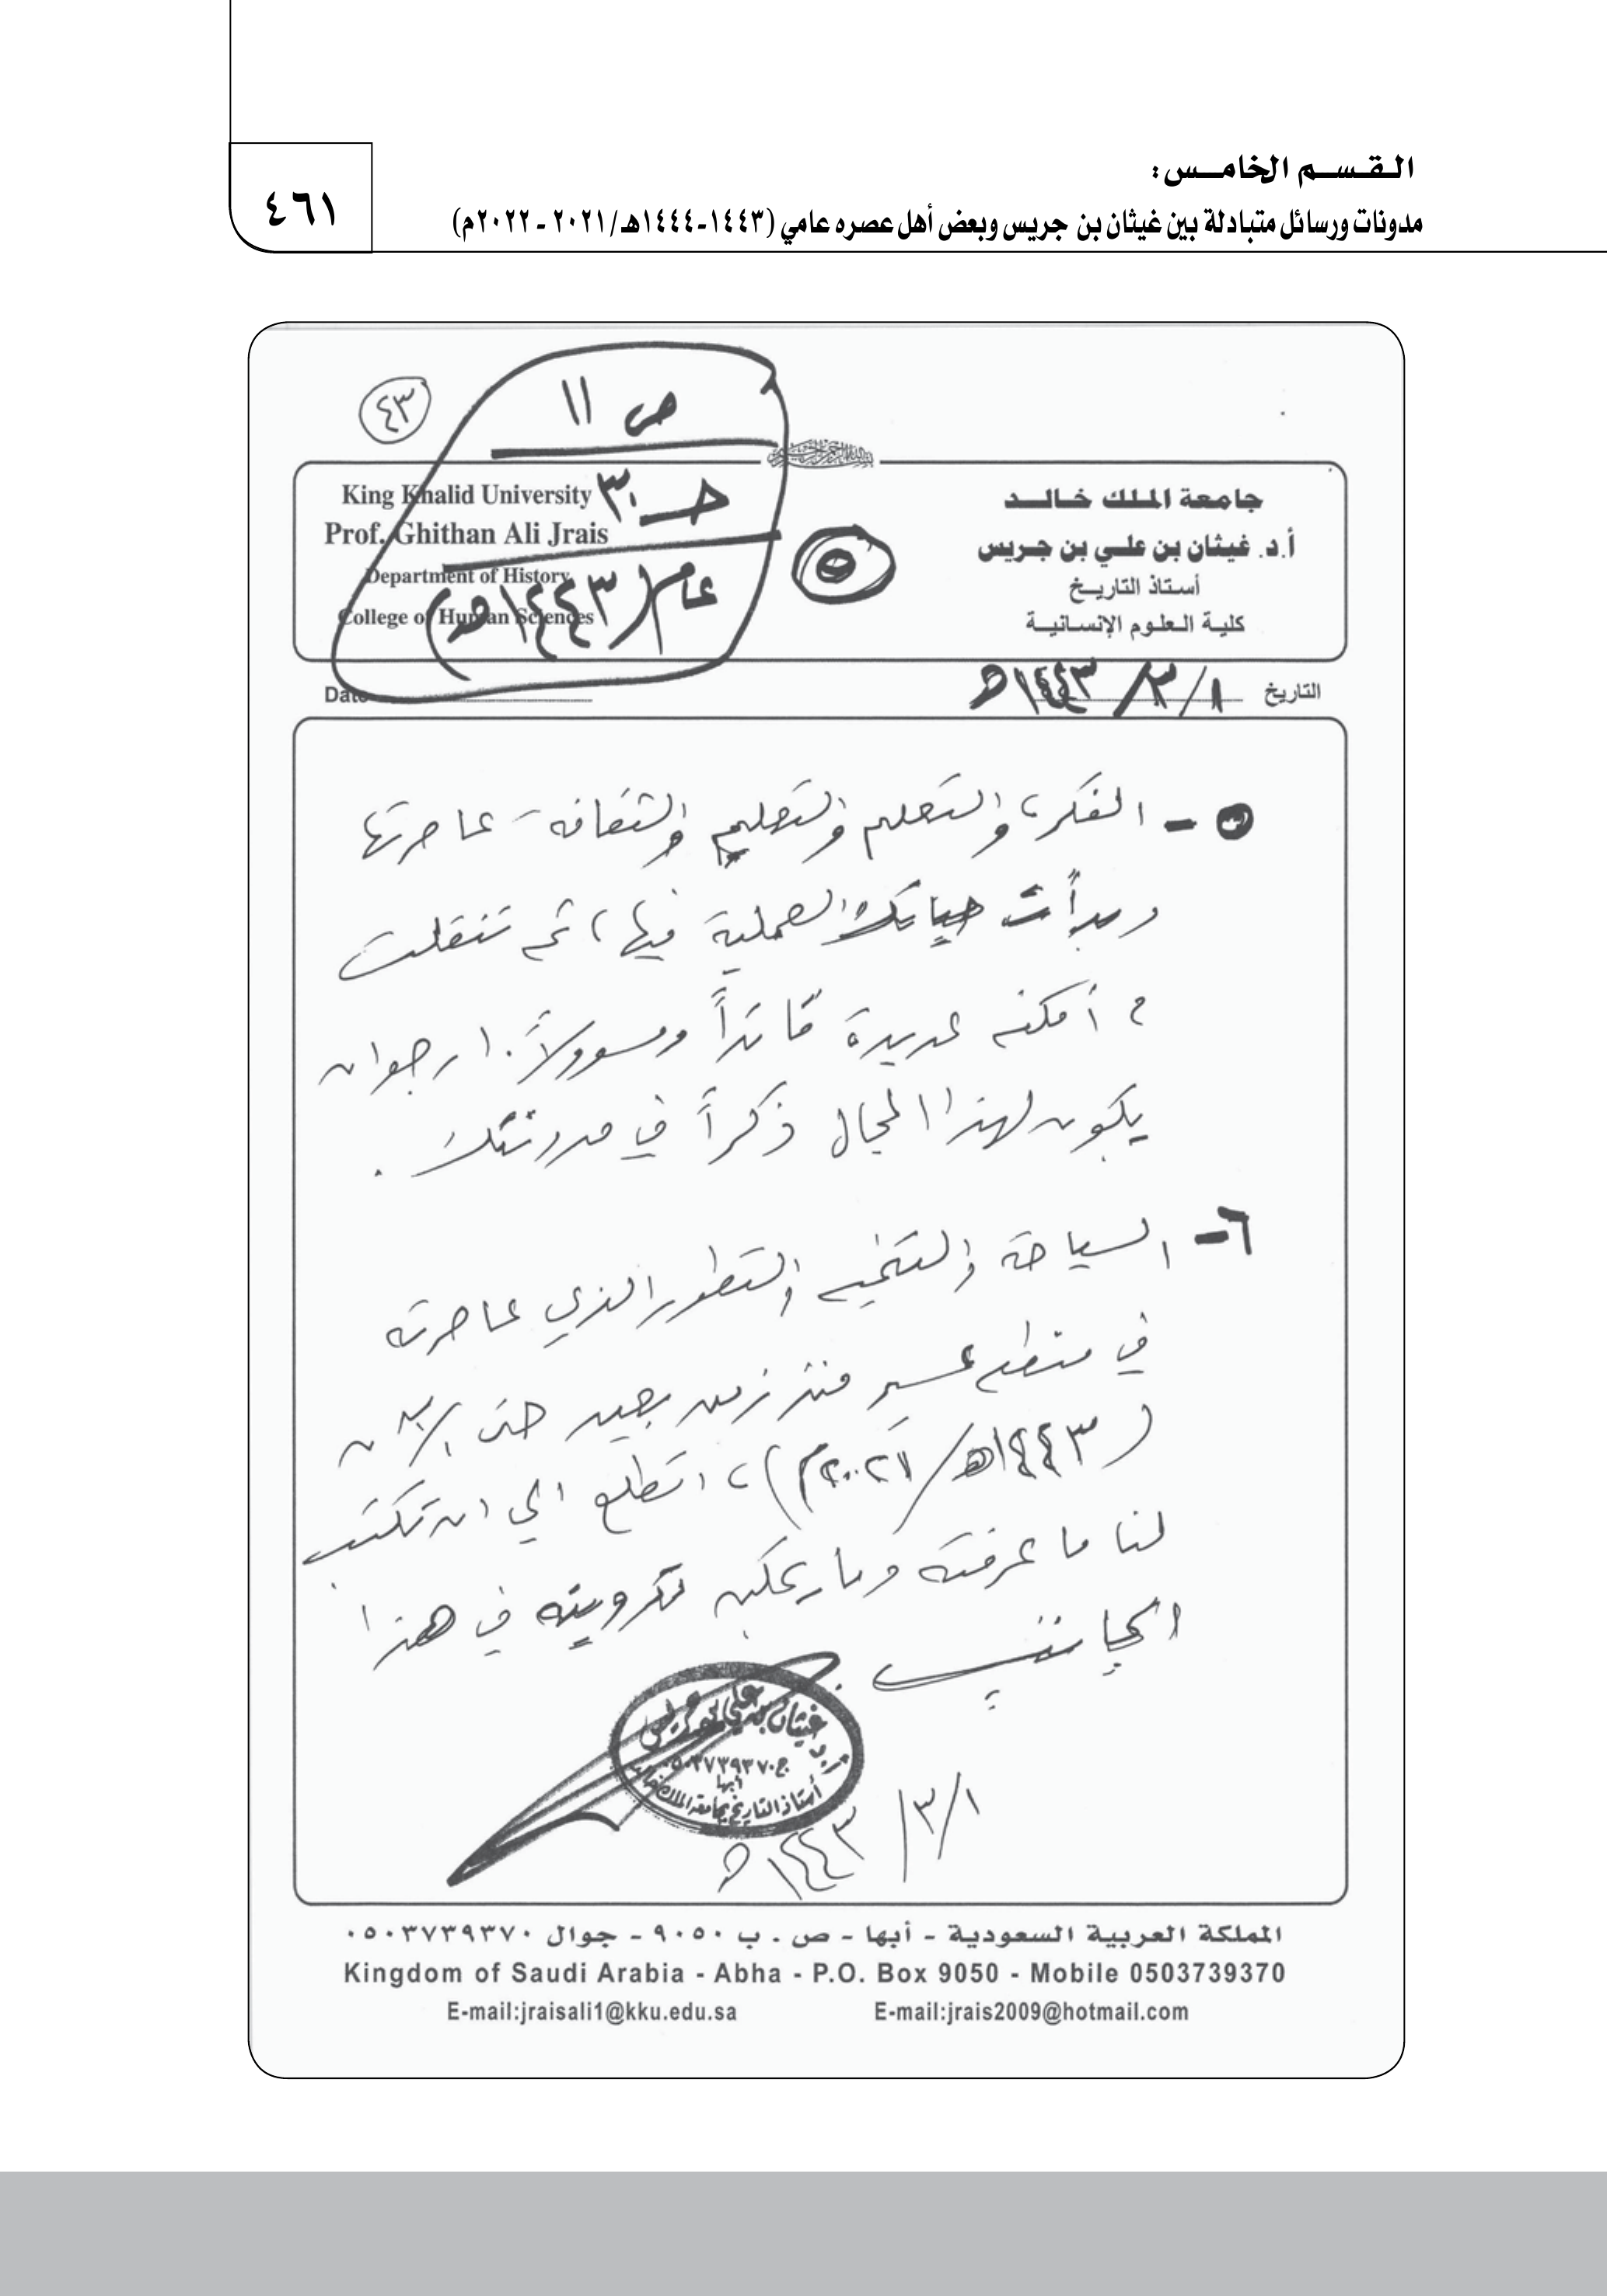 القسم الخامس:
مدونات ورسائل متبادلة بين غيثان بن جريس وبعض أهل عصره عامي (١٤٤٣-١٤٤٤هـ/٢٠٢١ - ٢٠٢٢م)
٤٦١
٤٣
ص ١١
حـ ٣٠
عام (١٤٤٣هـ)
٥
جامعة الملك خالد
أ.د. غيثان بن علي بن جريس
أستاذ التاريخ
كلية العلوم الإنسانية
King Khalid University
Prof. Ghithan Ali Jrais
Department of History
College of Human Sciences
التاريخ ١/٣/١٤٤٣هـ
Date
٥ - الفكر، والتعلم والتعليم والثقافة - عاصرتها
وبدأت حياتك العملية فيها، ثم تنقلت
في أمكنة عديدة قائداً ومسوولاً. ارجوان
يكون لهذا المجال ذكراً في مدونتك.
٦ - السياحة والتخييم والتطور الذي عاصرته
في منطقة عسير منذ زمن بعيد حتى الآن
(١٤٤٣هـ/٢٠٢١م)، اتطلع الى ان تكتب
لنا ما عرفته وما يمكن تدوينه في هذا
الجانب.
غيثان بن علي بن جريس
ج ٠٥٠٣٧٣٩٣٧٠
أبها
أستاذ التاريخ بجامعة الملك خالد
١/٣/١٤٤٣هـ
المملكة العربية السعودية - أبها - ص . ب ٩٠٥٠ - جوال ٠٥٠٣٧٣٩٣٧٠
Kingdom of Saudi Arabia - Abha - P.O. Box 9050 - Mobile 0503739370
E-mail:jraisali1@kku.edu.sa E-mail:jrais2009@hotmail.com